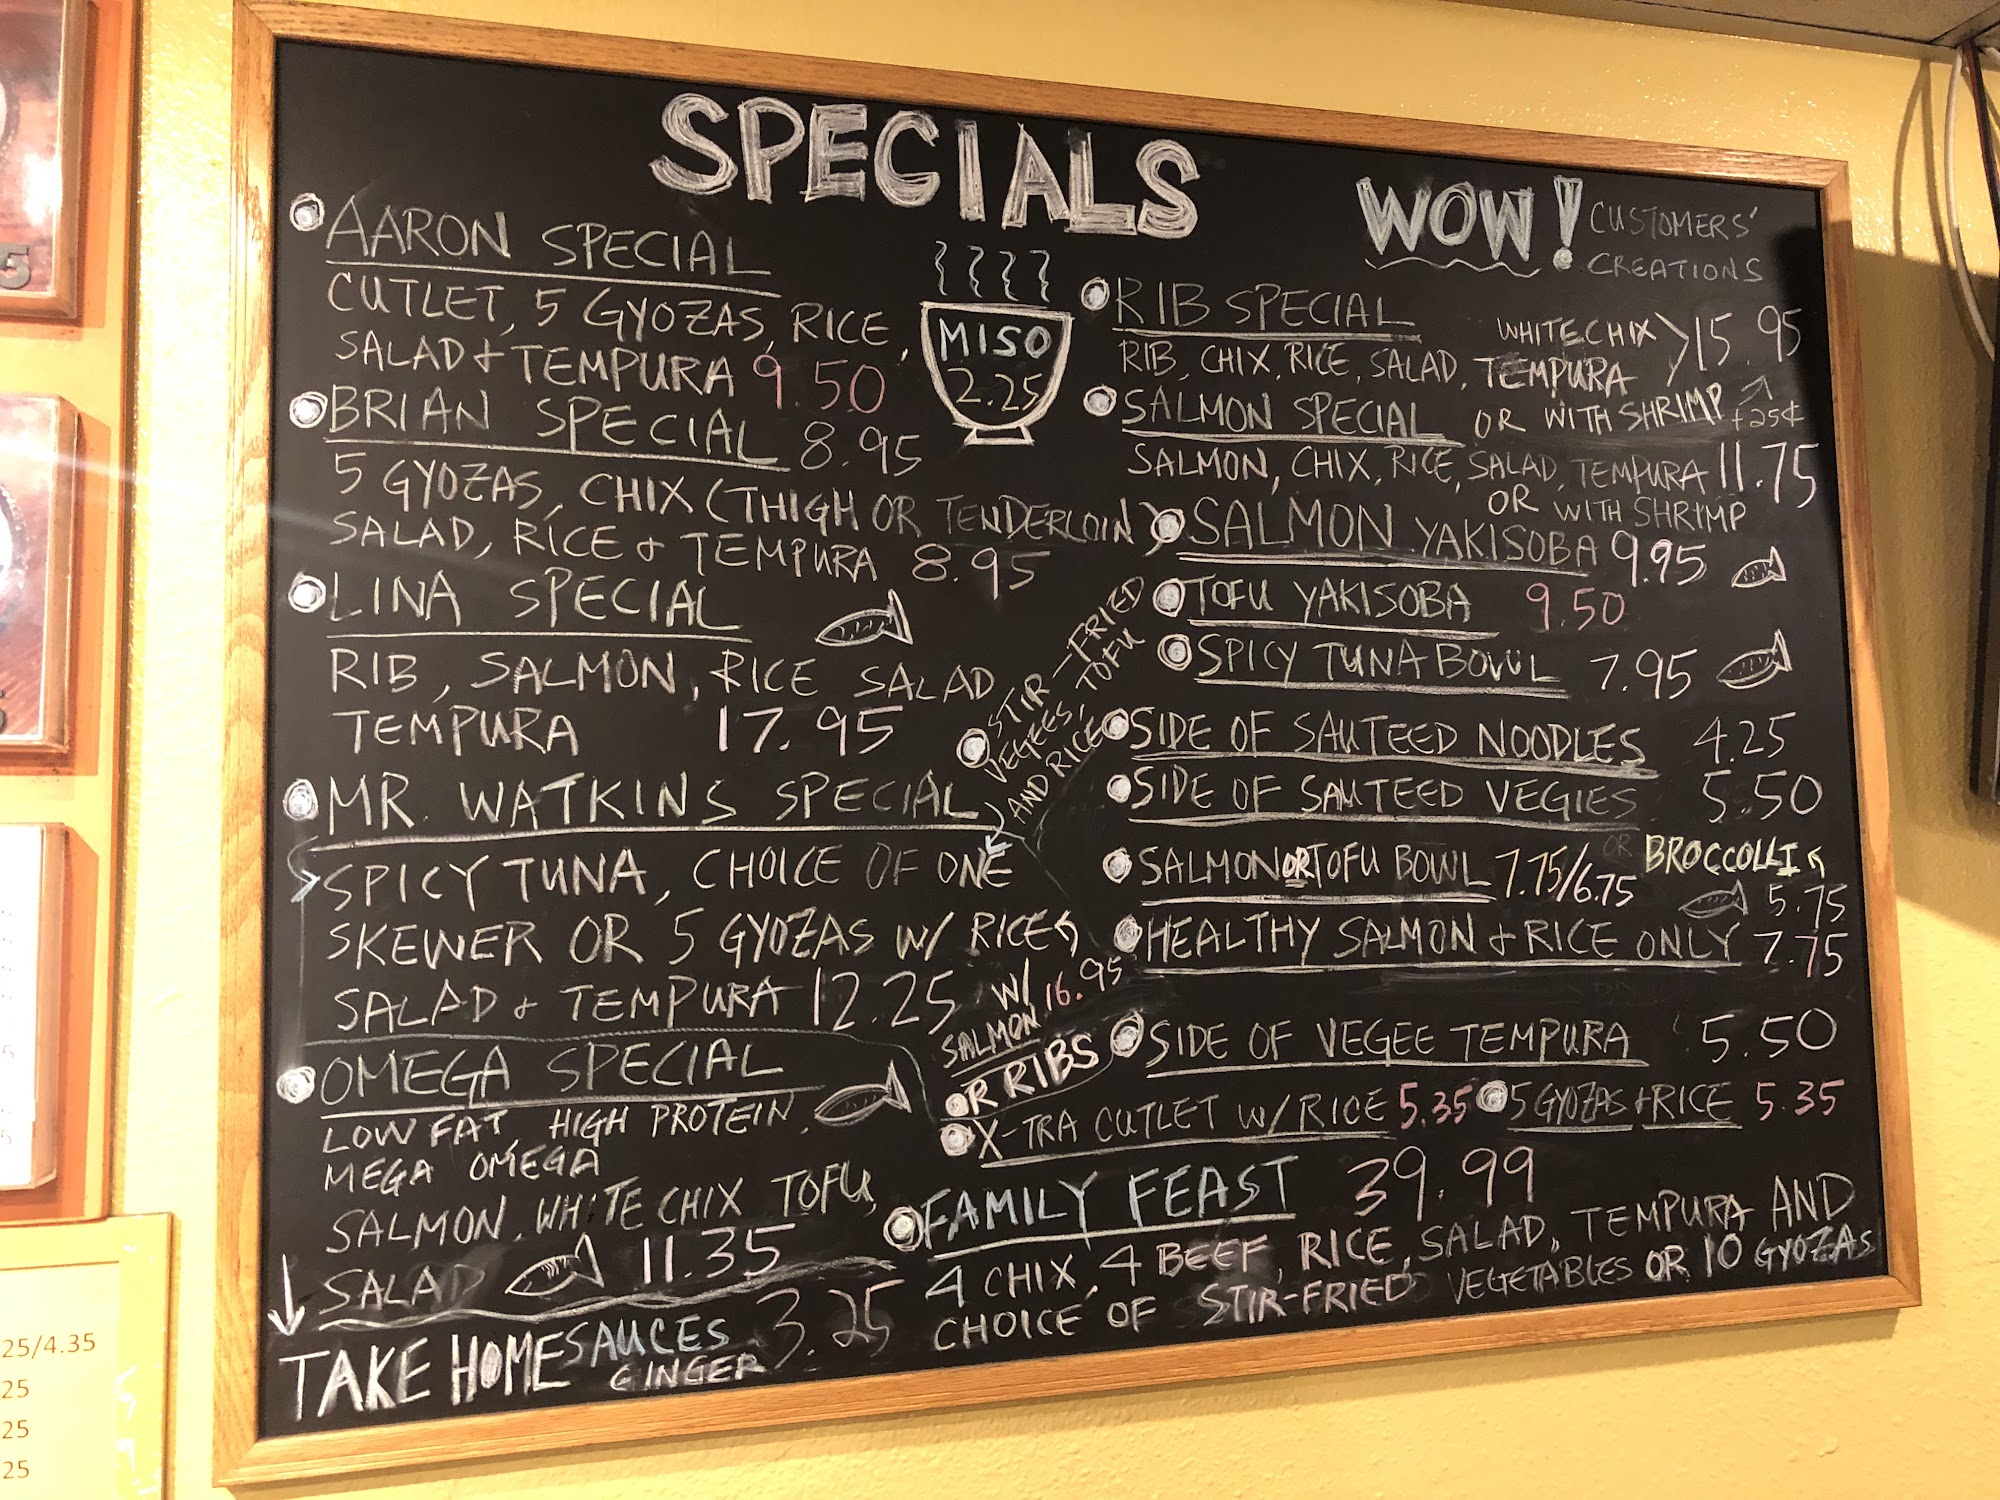 SPECIALS
WOW! CUSTOMERS'
CREATIONS
AARON SPECIAL
CUTLET, 5 GYOZAS, RICE,
SALAD + TEMPURA 9.50
BRIAN SPECIAL 8.95
5 GYOZAS, CHIX (THIGH OR TENDERLOIN)
SALAD, RICE + TEMPURA 8.95
LINA SPECIAL
RIB, SALMON, RICE SALAD
TEMPURA 17.95
MR. WATKINS SPECIAL
SPICY TUNA, CHOICE OF ONE
SKEWER OR 5 GYOZAS W/ RICE
SALAD + TEMPURA 12.25
STIR-FRIED
VEGEES, TOFU
AND RICE
W/
SALMON 16.95
R RIBS
OMEGA SPECIAL
LOW FAT, HIGH PROTEIN,
MEGA OMEGA
SALMON, WHITE CHIX TOFU,
SALAD 11.35
TAKE HOME SAUCES 3.25
GINGER
MISO
2.25
RIB SPECIAL
WHITE CHIX 15.95
RIB, CHIX, RICE, SALAD, TEMPURA
OR WITH SHRIMP +25¢
SALMON SPECIAL
SALMON, CHIX, RICE, SALAD, TEMPURA 11.75
OR WITH SHRIMP
SALMON YAKISOBA 9.95
TOFU YAKISOBA 9.50
SPICY TUNA BOWL 7.95
SIDE OF SAUTEED NOODLES 4.25
SIDE OF SAUTEED VEGIES 5.50
OR BROCCOLLI
5.75
SALMON OR TOFU BOWL 7.75/6.75
HEALTHY SALMON + RICE ONLY 7.75
SIDE OF VEGEE TEMPURA 5.50
X-TRA CUTLET W/RICE 5.35 5 GYOZAS + RICE 5.35
FAMILY FEAST 39.99
4 CHIX, 4 BEEF, RICE, SALAD, TEMPURA AND
CHOICE OF STIR-FRIED VEGETABLES OR 10 GYOZAS
25/4.35
25
25
25